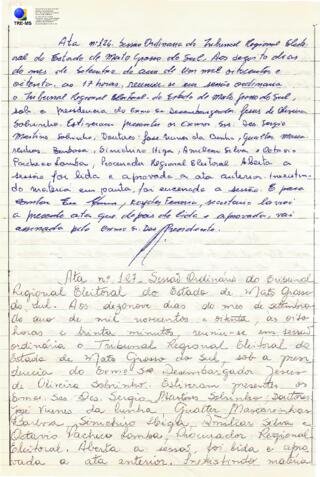 TRE-MS
Ata nº 126. Sessão Ordinária do Tribunal Regional Eleito-
ral do Estado de Mato Grosso do Sul. Aos
do mês de Setembro do ano de um mil oitocentos e
oitenta, ao 17 horas, reuniu-se em sessão ordinária
o Tribunal Regional Eleitoral do Estado de Mato Grosso do Sul,
sob a presidência do Exmo Sr. Desembargador Jesus de Oliveira
Sobrinho. Estiveram presentes os Exmos Srs. Des. Sergio
Martins Sobrinho, Doutores José Nunes da Cunha, Gualter Masca-
renhas Barbosa, Simichiro Higa, Amilcar Silva e Octavio
Pacheco Lomba, Procurador Regional Eleitoral. Aberta a
sessão foi lida e aprovada a ata anterior. Inexistin-
do matéria em pauta, foi encerrada a sessão. E para
constar Eu, secretario lavrei
a presente ata que depois de lida e aprovada, vai
assinada pelo Exmo Sr. Des. Presidente.
Ata nº 127. Sessão Ordinária do Tribunal
Regional Eleitoral do Estado de Mato Grosso
do Sul. Aos dezenove dias do mês de setembro
do ano de mil novecentos e oitenta, às oito
horas e trinta minutos, reuniu-se em sessão
ordinária o Tribunal Regional Eleitoral do
Estado de Mato Grosso do Sul, sob a presi-
dência do Exmo Sr. Desembargador Jesus
de Oliveira Sobrinho. Estiveram presentes os
Exmos. Srs. Des. Sergio Martins Sobrinho, Doutores
José Nunes da Cunha, Gualter Mascarenhas
Barbosa, Simichiro Higa, Amilcar Silva e
Octavio Pacheco Lomba, Procurador Regional
Eleitoral. Aberta a sessão, foi lida e apro-
vada a ata anterior. Inexistindo matéria